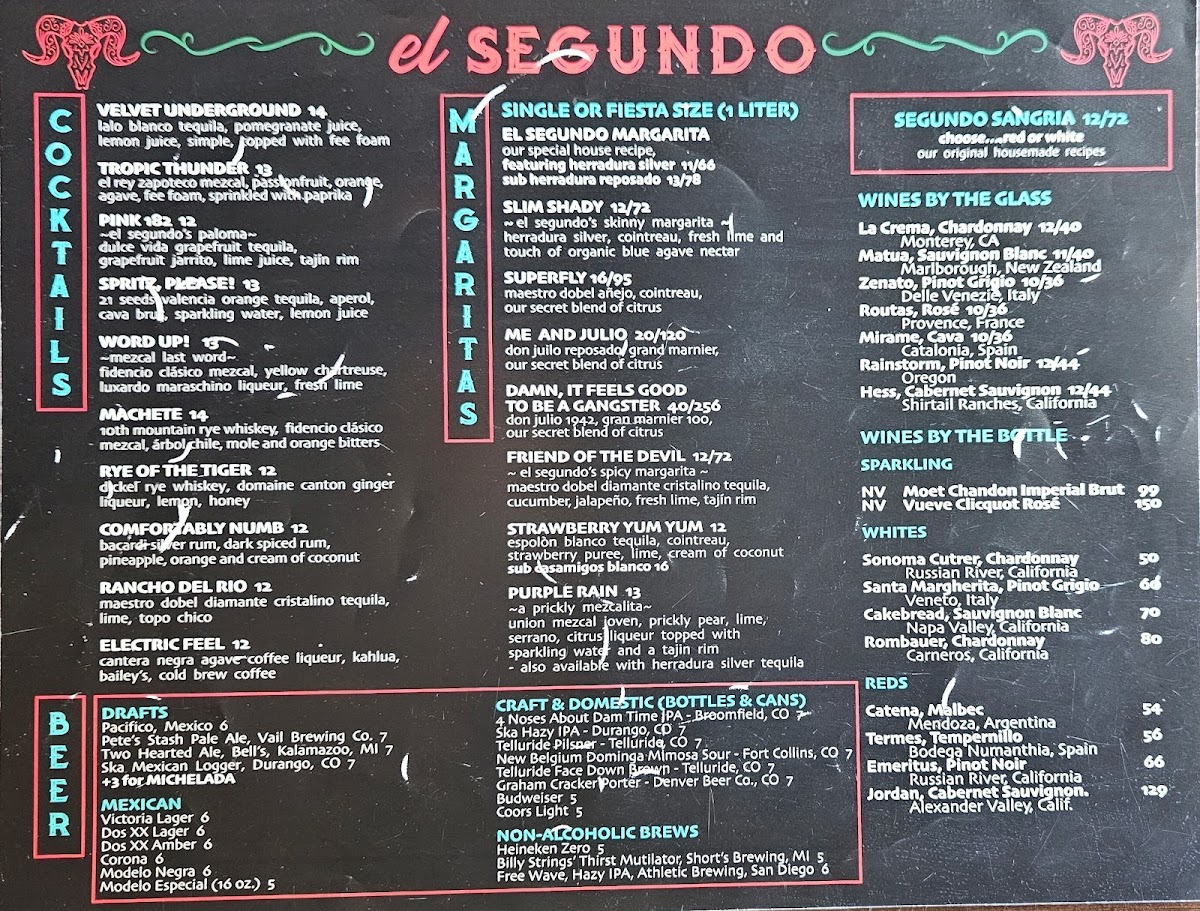 el SEGUNDO
COCKTAILS
VELVET UNDERGROUND 14
lalo blanco tequila, pomegranate juice,
lemon juice, simple, topped with fee foam
TROPIC THUNDER 13
el rey zapoteco mezcal, passionfruit, orange,
agave, fee foam, sprinkled with paprika
PINK 182 12
~el segundo's paloma~
dulce vida grapefruit tequila,
grapefruit jarrito, lime juice, tajin rim
SPRITZ, PLEASE! 13
21 seeds valencia orange tequila, aperol,
cava brut, sparkling water, lemon juice
WORD UP! 13
~mezcal last word~
fidencio clásico mezcal, yellow chartreuse,
luxardo maraschino liqueur, fresh lime
MACHETE 14
10th mountain rye whiskey, fidencio clásico
mezcal, árbol chile, mole and orange bitters
RYE OF THE TIGER 12
dickel rye whiskey, domaine canton ginger
liqueur, lemon, honey
COMFORTABLY NUMB 12
bacardi silver rum, dark spiced rum,
pineapple, orange and cream of coconut
RANCHO DEL RIO 12
maestro dobel diamante cristalino tequila,
lime, topo chico
ELECTRIC FEEL 12
cantera negra agave coffee liqueur, kahlua,
bailey's, cold brew coffee
MARGARITAS
SINGLE OR FIESTA SIZE (1 LITER)
EL SEGUNDO MARGARITA
our special house recipe,
featuring herradura silver 11/66
sub herradura reposado 13/78
SLIM SHADY 12/72
~ el segundo's skinny margarita ~
herradura silver, cointreau, fresh lime and
touch of organic blue agave nectar
SUPERFLY 16/95
maestro dobel añejo, cointreau,
our secret blend of citrus
ME AND JULIO 20/120
don juilo reposado, grand marnier,
our secret blend of citrus
DAMN, IT FEELS GOOD
TO BE A GANGSTER 40/256
don julio 1942, gran marnier 100,
our secret blend of citrus
FRIEND OF THE DEVIL 12/72
~ el segundo's spicy margarita ~
maestro dobel diamante cristalino tequila,
cucumber, jalapeño, fresh lime, tajín rim
STRAWBERRY YUM YUM 12
espolòn blanco tequila, cointreau,
strawberry puree, lime, cream of coconut
sub casamigos blanco 16
PURPLE RAIN 13
~a prickly mezcalita~
union mezcal joven, prickly pear, lime,
serrano, citrus liqueur topped with
sparkling water and a tajin rim
- also available with herradura silver tequila
SEGUNDO SANGRIA 12/72
choose....red or white
our original housemade recipes
WINES BY THE GLASS
La Crema, Chardonnay 12/40
Monterey, CA
Matua, Sauvignon Blanc 11/40
Marlborough, New Zealand
Zenato, Pinot Grigio 10/36
Delle Venezie, Italy
Routas, Rosé 10/36
Provence, France
Mirame, Cava 10/36
Catalonia, Spain
Rainstorm, Pinot Noir 12/44
Oregon
Hess, Cabernet Sauvignon 12/44
Shirtail Ranches, California
WINES BY THE BOTTLE
SPARKLING
NV Moet Chandon Imperial Brut 99
NV Vueve Clicquot Rosé 150
WHITES
Sonoma Cutrer, Chardonnay 50
Russian River, California
Santa Margherita, Pinot Grigio 66
Veneto, Italy
Cakebread, Sauvignon Blanc 70
Napa Valley, California
Rombauer, Chardonnay 80
Carneros, California
REDS
Catena, Malbec 54
Mendoza, Argentina
Termes, Tempernillo 56
Bodega Numanthia, Spain
Emeritus, Pinot Noir 66
Russian River, California
Jordan, Cabernet Sauvignon. 129
Alexander Valley, Calif.
BEER
DRAFTS
Pacifico, Mexico 6
Pete's Stash Pale Ale, Vail Brewing Co. 7
Two Hearted Ale, Bell's, Kalamazoo, MI 7
Ska Mexican Logger, Durango, CO 7
+3 for MICHELADA
MEXICAN
Victoria Lager 6
Dos XX Lager 6
Dos XX Amber 6
Corona 6
Modelo Negra 6
Modelo Especial (16 oz.) 5
CRAFT & DOMESTIC (BOTTLES & CANS)
4 Noses About Dam Time IPA - Broomfield, CO 7
Ska Hazy IPA - Durango, CO 7
Telluride Pilsner - Telluride, CO 7
New Belgium Dominga Mimosa Sour - Fort Collins, CO 7
Telluride Face Down Brown - Telluride, CO 7
Graham Cracker Porter - Denver Beer Co., CO 7
Budweiser 5
Coors Light 5
NON-ALCOHOLIC BREWS
Heineken Zero 5
Billy Strings' Thirst Mutilator, Short's Brewing, MI 5
Free Wave, Hazy IPA, Athletic Brewing, San Diego 6